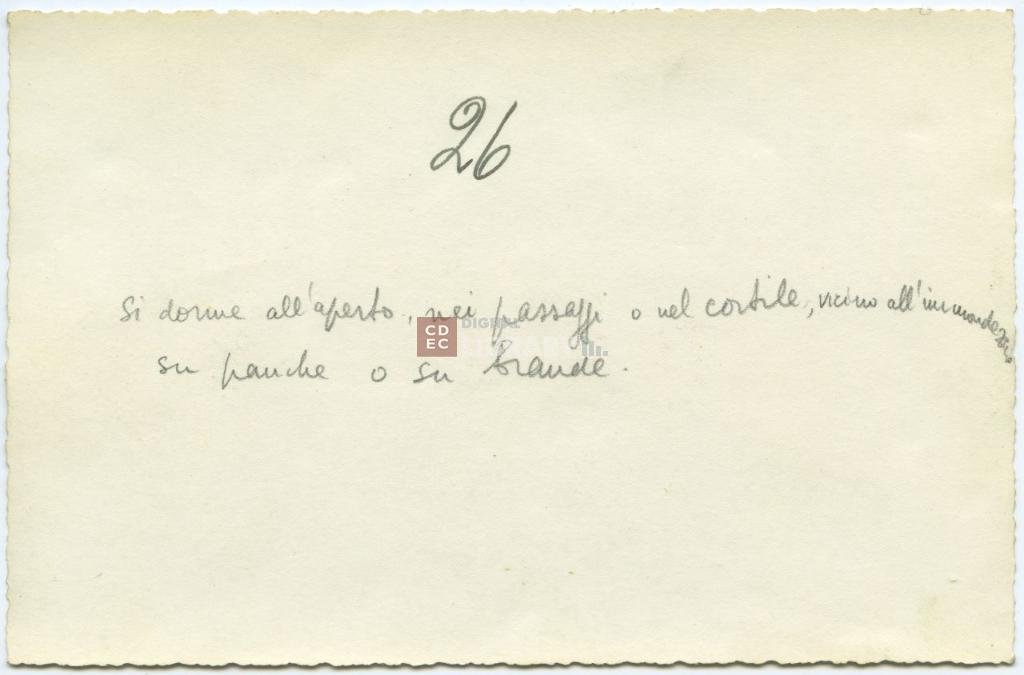 26
Si dorme all'aperto, nei passaggi o nel cortile, vicino all'immondezzaio
su panche o su brande.
CDEC DIGITAL LIBRARY